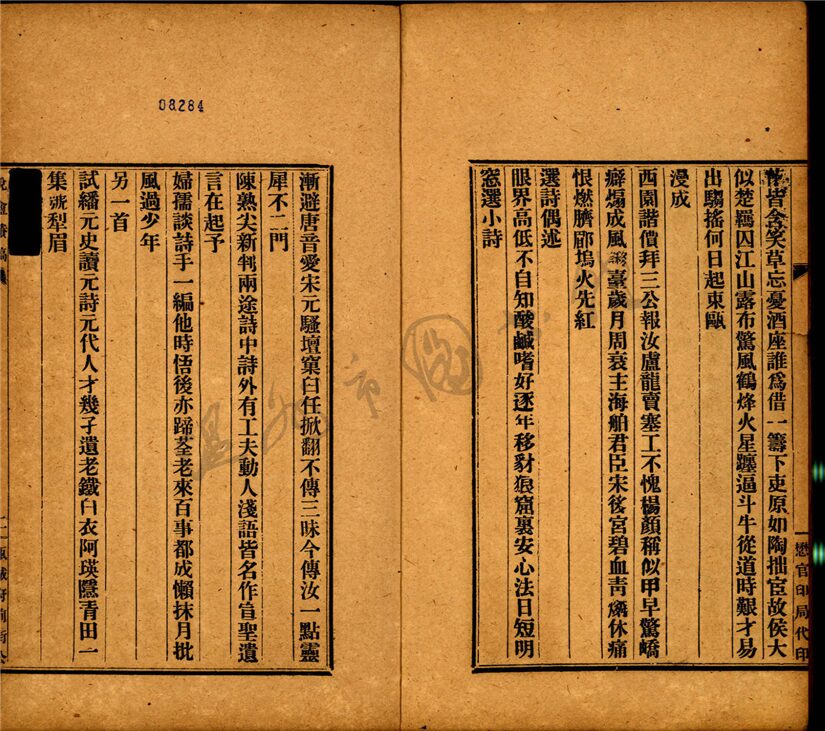 皆含笑草忘憂酒座誰爲借一籌下吏原如陶拙宦故侯大
似楚羈囚江山露布驚風鶴烽火星躔逼斗牛從道時艱才易
出騶搖何日起東甌
漫成
西園諧價拜三公報汝盧龍賣塞工不愧楊顏稱似甲早驚嶠
癖煽成風臺歲月周衰主海舶君臣宋後宮碧血靑燐休痛
恨燃臍郿塢火先紅
選詩偶述
眼界高低不自知酸鹹嗜好逐年移豺狼窟裏安心法日短明
窓選小詩
懋官印局代印
08284
漸避唐音愛宋元騷壇窠臼任掀翻不傳三昧今傳汝一點靈
犀不二門
陳熟尖新判兩途詩中詩外有工夫動人淺語皆名作宣聖遺
言在起予
婦孺談詩手一編他時悟後亦蹄荃老來百事都成懶抹月批
風過少年
另一首
試繙元史讀元詩元代人才幾子遺老鐵白衣阿瑛隱靑田一
集號犁眉